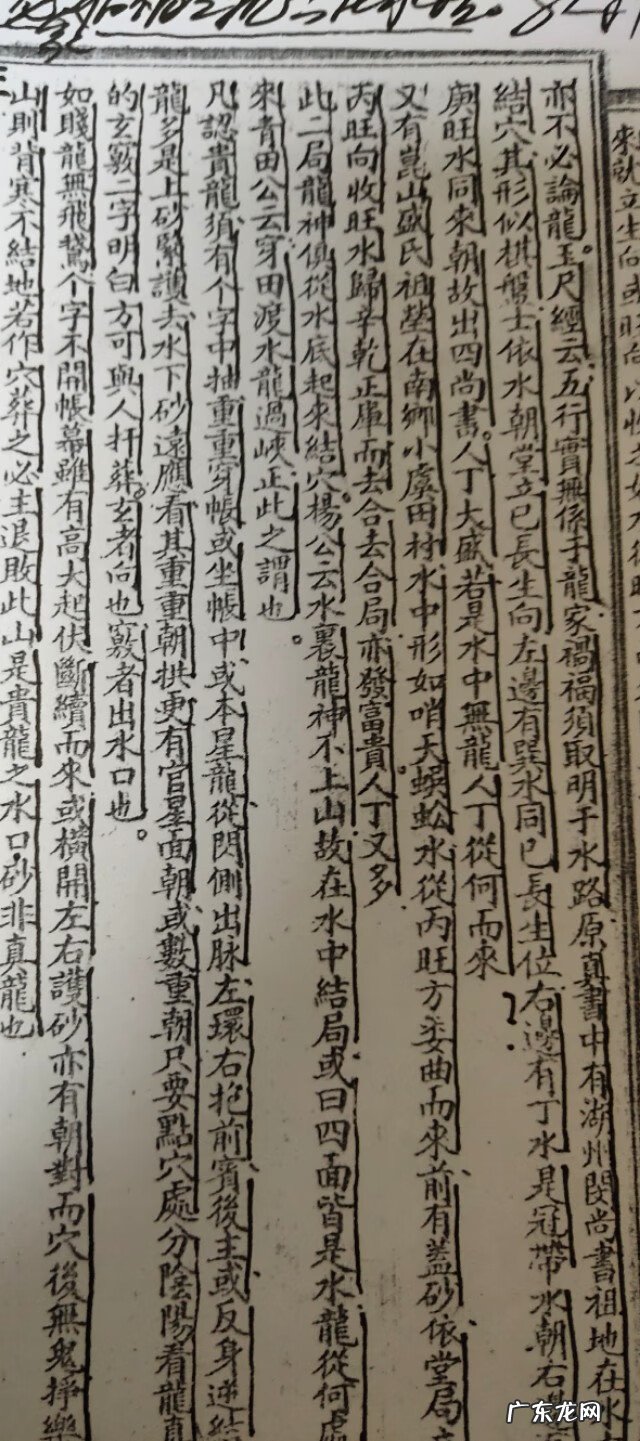 來就立生向或旺向
亦不必論龍玉尺經云五行實無係于龍家禍福須取明于水路原真書中有湖州閔尚書祖地在水
結穴其形似棋盤士依水朝堂立巳長生向左邊有巽水同巳長生位右邊有丁水是冠帶水朝右邊
庚旺水同來朝故出四尚書人丁大盛若是水中無龍人丁從何而來
又有崑山盛氏祖塋在南鄉小虞田村水中形如哨天蜈蚣水從丙旺方委曲而來前有蓋砂依堂局立
丙旺向收旺水歸辛乾正庫而去合去合局亦發富貴人丁又多
此二局龍神俱從水底起來結穴楊公云水裏龍神不上山故在水中結局或曰四面皆是水龍從何處
來青田公云穿田渡水龍過峽正此之謂也
凡認貴龍須有个字中抽重重穿帳或坐帳中或本星龍從閃側出脉左環右抱前賓後主或反身逆結
龍多是上砂緊護去水下砂遠應看其重重朝拱更有官星面朝或數重朝只要點穴處分陰陽看龍真
的玄竅二字明白方可與人扦葬玄者向也竅者出水口也
如賤龍無飛鵞个字不開帳幕雖有高大起伏斷續而來或橫開左右護砂亦有朝對而穴後無鬼掙樂
山則背寒不結地若作穴葬之必主退敗此山是貴龍之水口砂非真龍也
广东龙网